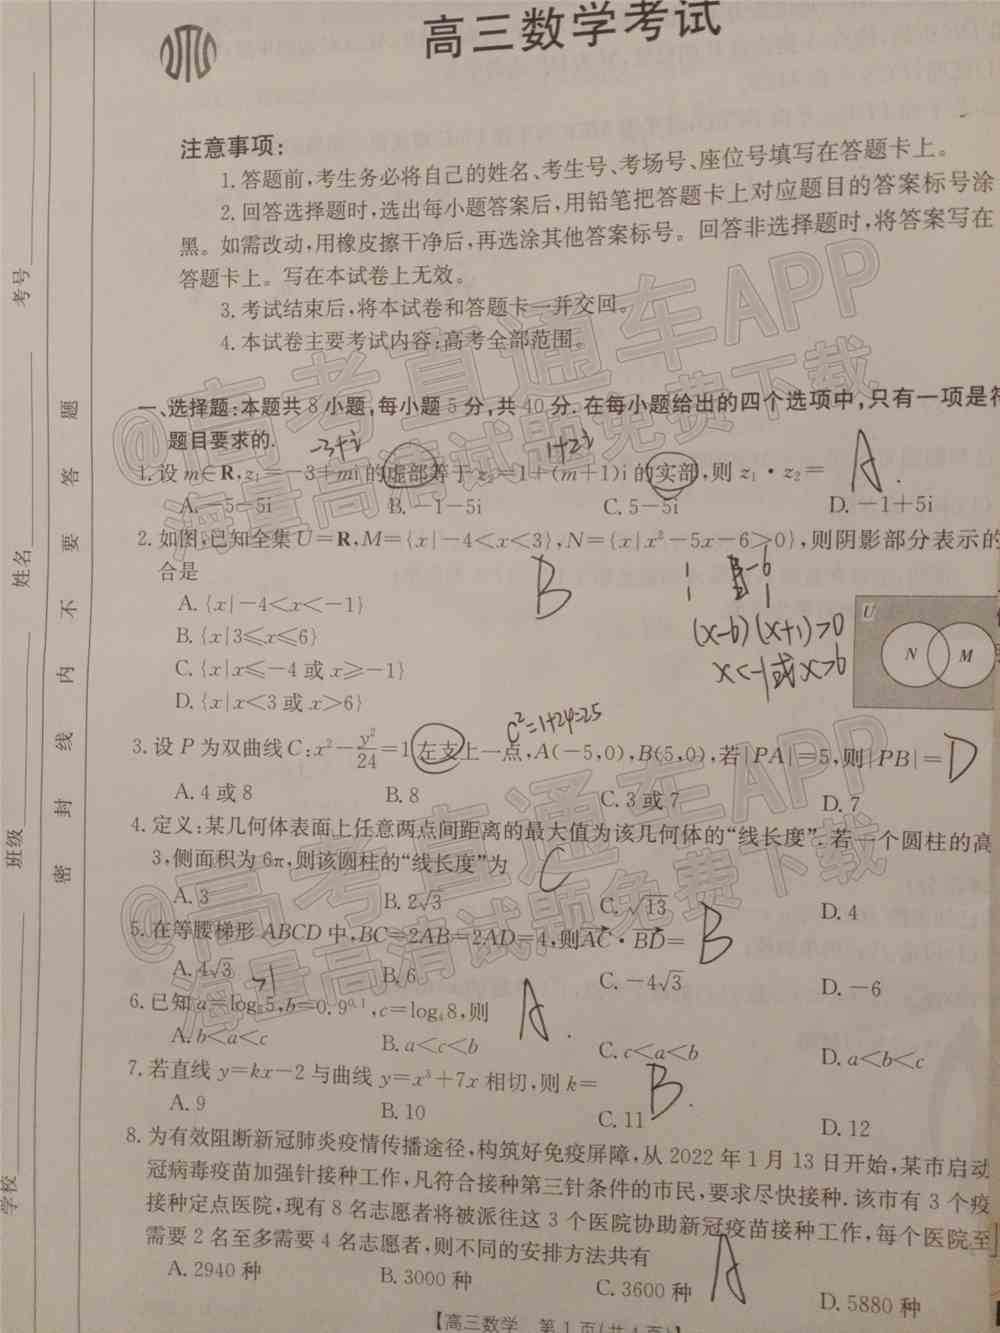 高三数学考试
注意事项:
1.答题前,考生务必将自己的姓名、考生号、考场号、座位号填写在答题卡上。
2.回答选择题时,选出每小题答案后,用铅笔把答题卡上对应题目的答案标号涂
黑。如需改动,用橡皮擦干净后,再选涂其他答案标号。回答非选择题时,将答案写在
答题卡上。写在本试卷上无效。
3.考试结束后,将本试卷和答题卡一并交回。
4.本试卷主要考试内容:高考全部范围。
@高考直通车APP
海量高清试题免费下载
一、选择题:本题共8小题,每小题5分,共40分.在每小题给出的四个选项中,只有一项是符
题目要求的.
-3+i
1+2i
1.设m∈R,z₁=-3+mi的虚部等于z₂=1+(m+1)i的实部,则z₁·z₂=
A
A.-5-5i B.-1-5i C.5-5i D.-1+5i
2.如图,已知全集U=R,M={x|-4<x<3},N={x|x²-5x-6>0},则阴影部分表示的
合是
B
A.{x|-4<x<-1}
B.{x|3≤x≤6}
C.{x|x≤-4或x≥-1}
D.{x|x<3或x>6}
1 -6
1 1
(x-6)(x+1)>0
x<-1或x>6
U
N M
c²=1+24=25
3.设P为双曲线C:x²-y²/24=1左支上一点,A(-5,0),B(5,0),若|PA|=5,则|PB|=
D
A.4或8 B.8 C.3或7 D.7
4.定义:某几何体表面上任意两点间距离的最大值为该几何体的“线长度”.若一个圆柱的高
3,侧面积为6π,则该圆柱的“线长度”为
C
A.3 B.2√3 C.√13 D.4
@高考直通车APP
海量高清试题免费下载
5.在等腰梯形ABCD中,BC=2AB=2AD=4,则AC·BD=
B
A.4√3 B.6 C.-4√3 D.-6
>1
6.已知a=log₈5,b=0.9^0.1,c=log₄8,则
A
A.b<a<c B.a<c<b C.c<a<b D.a<b<c
7.若直线y=kx-2与曲线y=x³+7x相切,则k=
B
A.9 B.10 C.11 D.12
8.为有效阻断新冠肺炎疫情传播途径,构筑好免疫屏障,从2022年1月13日开始,某市启动
冠病毒疫苗加强针接种工作,凡符合接种第三针条件的市民,要求尽快接种.该市有3个疫
接种定点医院,现有8名志愿者将被派往这3个医院协助新冠疫苗接种工作,每个医院至
需要2名至多需要4名志愿者,则不同的安排方法共有
A
A.2940种 B.3000种 C.3600种 D.5880种
【高三数学 第1页(共4页)】
学校
班级
姓名
考号
密封线内不要答题